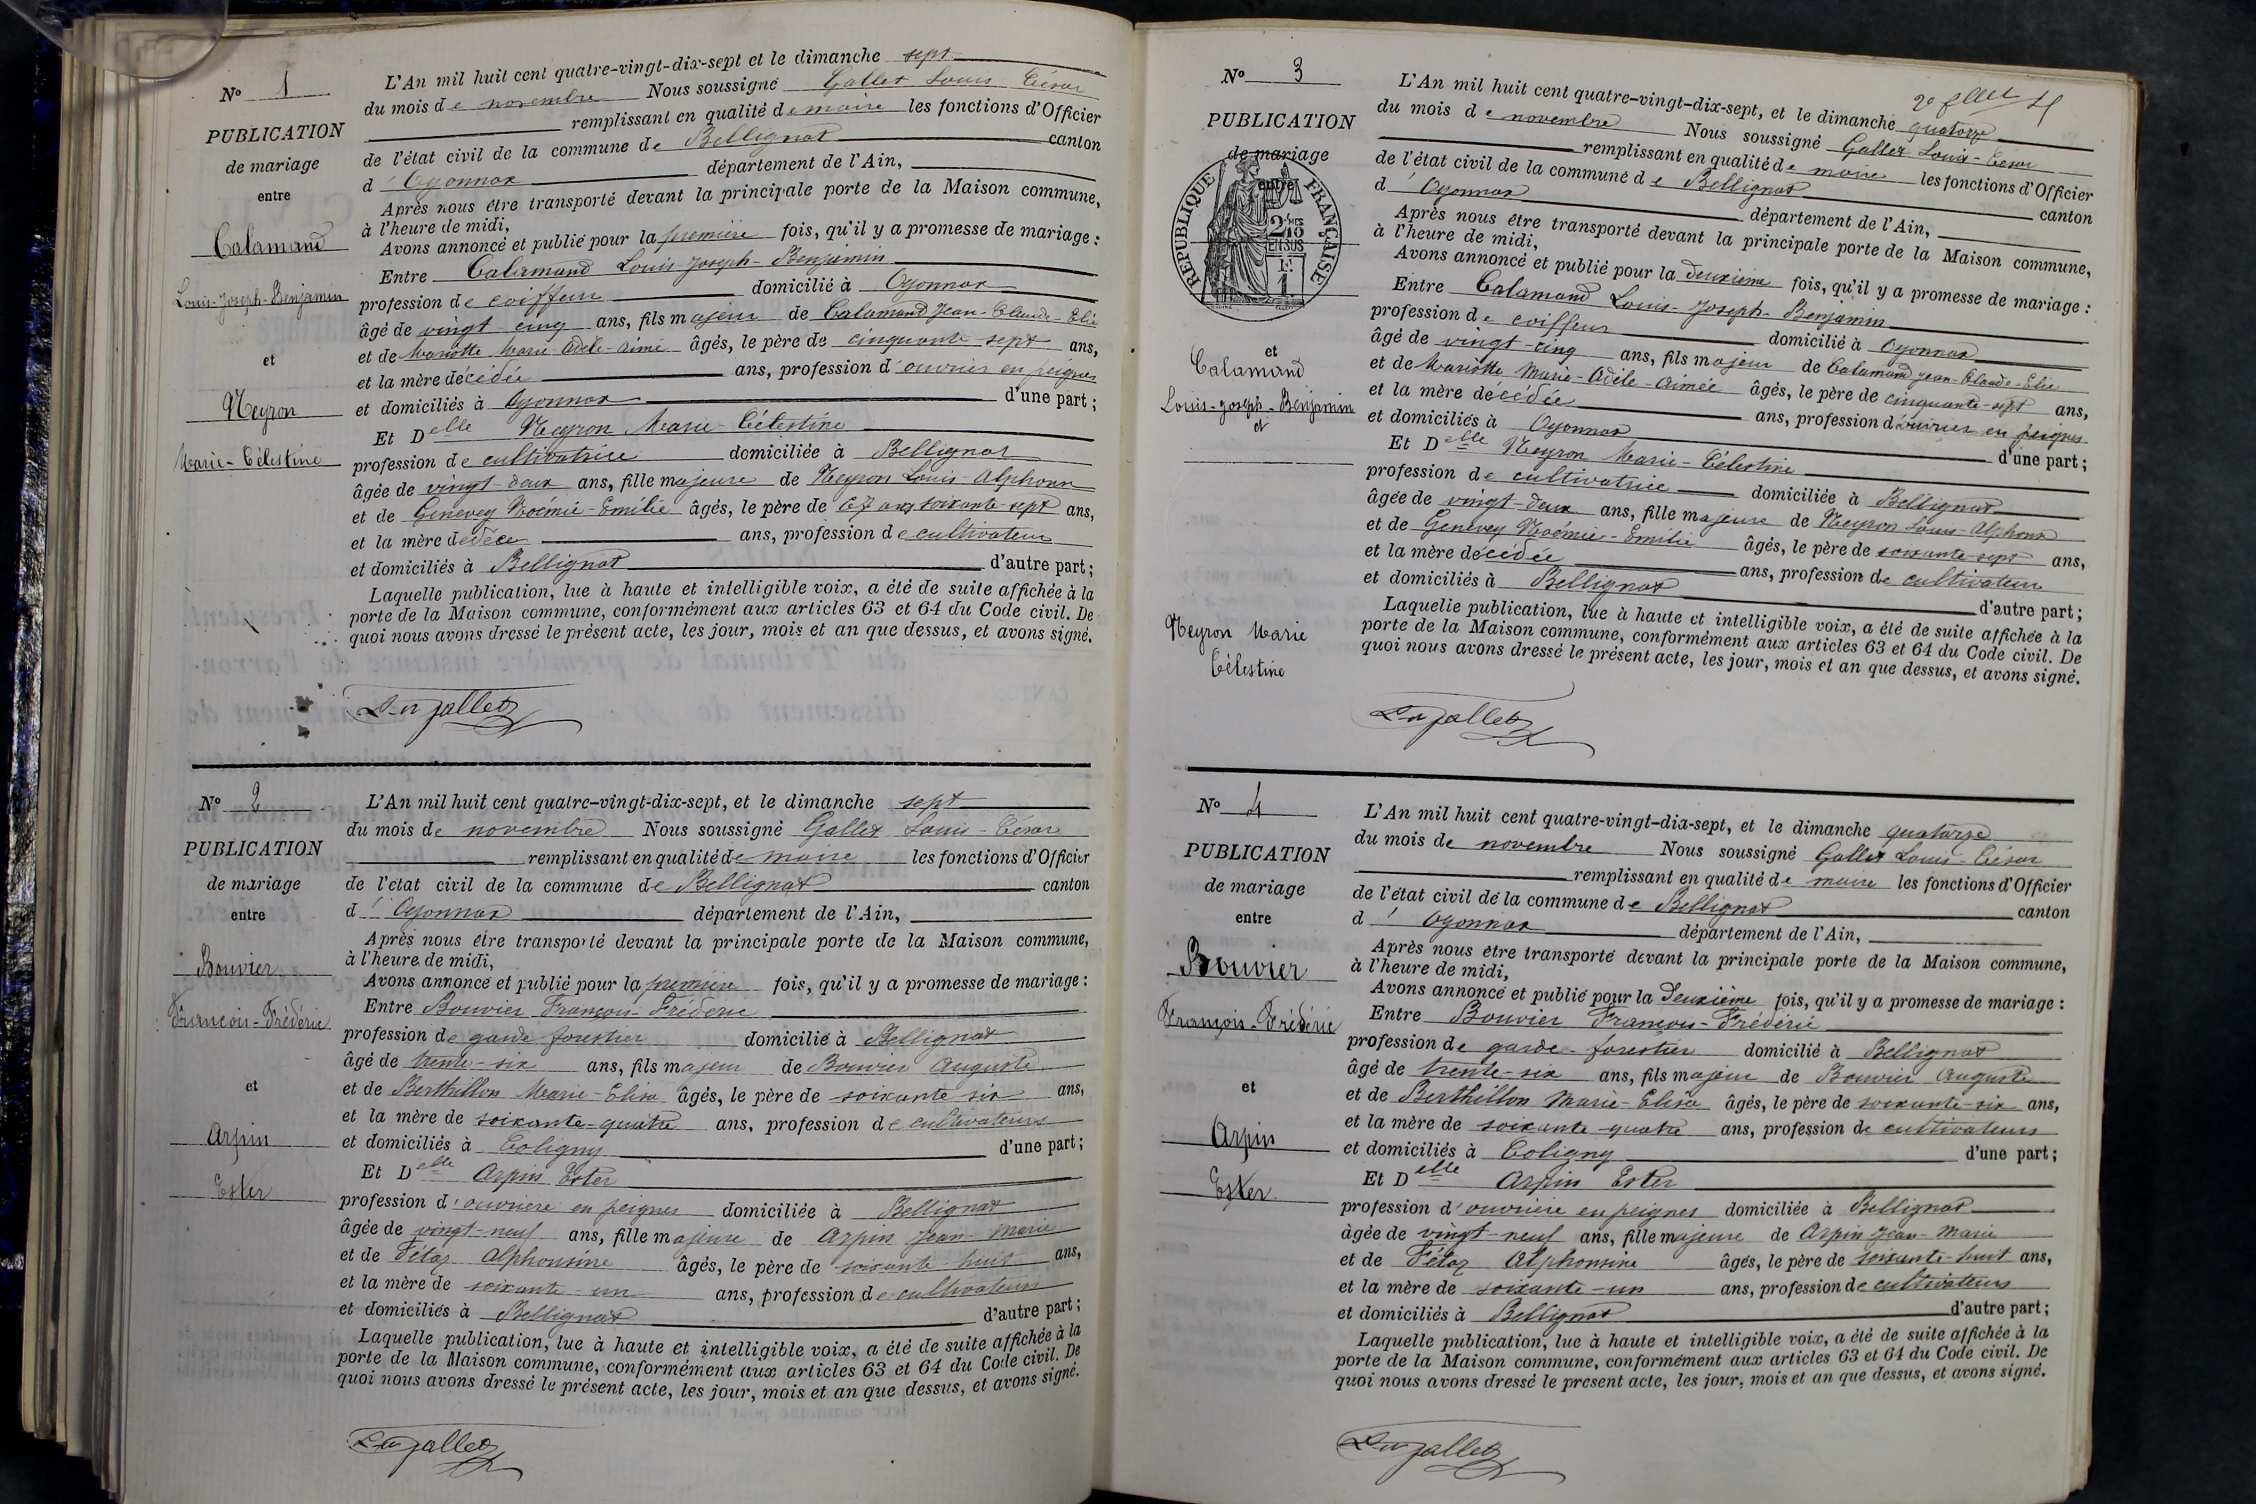 L'An mil huit cent quatre-vingt-dix-sept et le dimanche sept
N° 1
du mois de novembre Nous soussigné Gallet Louis César
remplissant en qualité de maire les fonctions d'Officier
PUBLICATION
de l'état civil de la commune de Bellignat canton
de mariage
d'Oyonnax département de l'Ain,
entre
Après nous être transporté devant la principale porte de la Maison commune,
à l'heure de midi,
Calamand
Avons annoncé et publié pour la première fois, qu'il y a promesse de mariage :
Entre Calamand Louis-Joseph-Benjamin
Louis-Joseph-Benjamin
profession de coiffeur domicilié à Oyonnax
âgé de vingt cinq ans, fils majeur de Calamand Jean-Claude-Elie
et
et de Mariotte Marie Adèle-Aimé âgés, le père de cinquante sept ans,
et la mère décédée ans, profession d'ouvrier en peignes
Neyron
et domiciliés à Oyonnax d'une part ;
Et Delle Neyron Marie-Célestine
Marie-Célestine
profession de cultivatrice domiciliée à Bellignat
âgée de vingt deux ans, fille majeure de Neyron Louis-Alphonse
et de Genevey Noémie-Emilie âgés, le père de 67 ans soixante-sept ans,
et la mère ans, profession de cultivateur
et domiciliés à Bellignat d'autre part ;
Laquelle publication, lue à haute et intelligible voix, a été de suite affichée à la
porte de la Maison commune, conformément aux articles 63 et 64 du Code civil. De
quoi nous avons dressé le présent acte, les jour, mois et an que dessus, et avons signé.
Gallet
N° 2
L'An mil huit cent quatre-vingt-dix-sept, et le dimanche sept
du mois de novembre Nous soussigné Gallet Louis-César
PUBLICATION
remplissant en qualité de maire les fonctions d'Officier
de mariage
de l'état civil de la commune de Bellignat canton
entre
d'Oyonnax département de l'Ain,
Après nous être transporté devant la principale porte de la Maison commune,
à l'heure de midi,
Bouvier
Avons annoncé et publié pour la première fois, qu'il y a promesse de mariage :
Entre Bouvier François-Fréderic
François-Frédéric
profession de garde forestier domicilié à Bellignat
âgé de trente-six ans, fils majeur de Bouvier Auguste
et
et de Berthillon Marie-Elisa âgés, le père de soixante six ans,
et la mère de soixante-quatre ans, profession de cultivateurs
Arpin
et domiciliés à Coligny d'une part ;
Et Delle Arpin Ester
Ester
profession d'ouvrière en peignes domiciliée à Bellignat
âgée de vingt-neuf ans, fille majeure de Arpin Jean-Marie
et de Fétaz Alphonsine âgés, le père de soixante huit ans,
et la mère de soixante-un ans, profession de cultivateurs
et domiciliés à Bellignat d'autre part ;
Laquelle publication, lue à haute et intelligible voix, a été de suite affichée à la
porte de la Maison commune, conformément aux articles 63 et 64 du Code civil. De
quoi nous avons dressé le présent acte, les jour, mois et an que dessus, et avons signé.
Gallet
N° 3
L'An mil huit cent quatre-vingt-dix-sept, et le dimanche quatorze
du mois de novembre Nous soussigné Gallet Louis-César
PUBLICATION
remplissant en qualité de maire les fonctions d'Officier
de mariage
de l'état civil de la commune de Bellignat canton
entre
d'Oyonnax département de l'Ain,
RÉPUBLIQUE FRANÇAISE
2/10 EN SUS
Après nous être transporté devant la principale porte de la Maison commune,
à l'heure de midi,
Avons annoncé et publié pour la deuxième fois, qu'il y a promesse de mariage :
Entre Calamand Louis-Joseph-Benjamin
profession de coiffeur domicilié à Oyonnax
et
âgé de vingt-cinq ans, fils majeur de Calamand Jean-Claude-Elie
Calamand
et de Mariotte Marie-Adèle-Aimée âgés, le père de cinquante-sept ans,
Louis-Joseph-Benjamin
et la mère décédée ans, profession d'ouvrier en peignes
et
et domiciliés à Oyonnax d'une part ;
Et Delle Neyron Marie-Célestine
profession de cultivatrice domiciliée à Bellignat
âgée de vingt-deux ans, fille majeure de Neyron Louis-Alphonse
et de Genevey Noémie-Emilie âgés, le père de soixante sept ans,
et la mère décédée ans, profession de cultivateur
et domiciliés à Bellignat d'autre part ;
Neyron Marie
Célestine
Laquelle publication, lue à haute et intelligible voix, a été de suite affichée à la
porte de la Maison commune, conformément aux articles 63 et 64 du Code civil. De
quoi nous avons dressé le présent acte, les jour, mois et an que dessus, et avons signé.
Gallet
N° 4
L'An mil huit cent quatre-vingt-dix-sept, et le dimanche quatorze
du mois de novembre Nous soussigné Gallet Louis-César
PUBLICATION
remplissant en qualité de maire les fonctions d'Officier
de mariage
de l'état civil de la commune de Bellignat canton
entre
d'Oyonnax département de l'Ain,
Après nous être transporté devant la principale porte de la Maison commune,
Bouvier
à l'heure de midi,
Avons annoncé et publié pour la deuxième fois, qu'il y a promesse de mariage :
François-Frédéric
Entre Bouvier François-Frédéric
profession de garde-forestier domicilié à Bellignat
âgé de trente-six ans, fils majeur de Bouvier Auguste
et
et de Berthillon Marie-Elisa âgés, le père de soixante-six ans,
et la mère de soixante quatre ans, profession de cultivateurs
Arpin
et domiciliés à Coligny d'une part ;
Et Delle Arpin Ester
Ester
profession d'ouvrière en peignes domiciliée à Bellignat
âgée de vingt-neuf ans, fille majeure de Arpin Jean-Marie
et de Fétaz Alphonsine âgés, le père de soixante-huit ans,
et la mère de soixante-un ans, profession de cultivateurs
et domiciliés à Bellignat d'autre part ;
Laquelle publication, lue à haute et intelligible voix, a été de suite affichée à la
porte de la Maison commune, conformément aux articles 63 et 64 du Code civil. De
quoi nous avons dressé le présent acte, les jour, mois et an que dessus, et avons signé.
Gallet